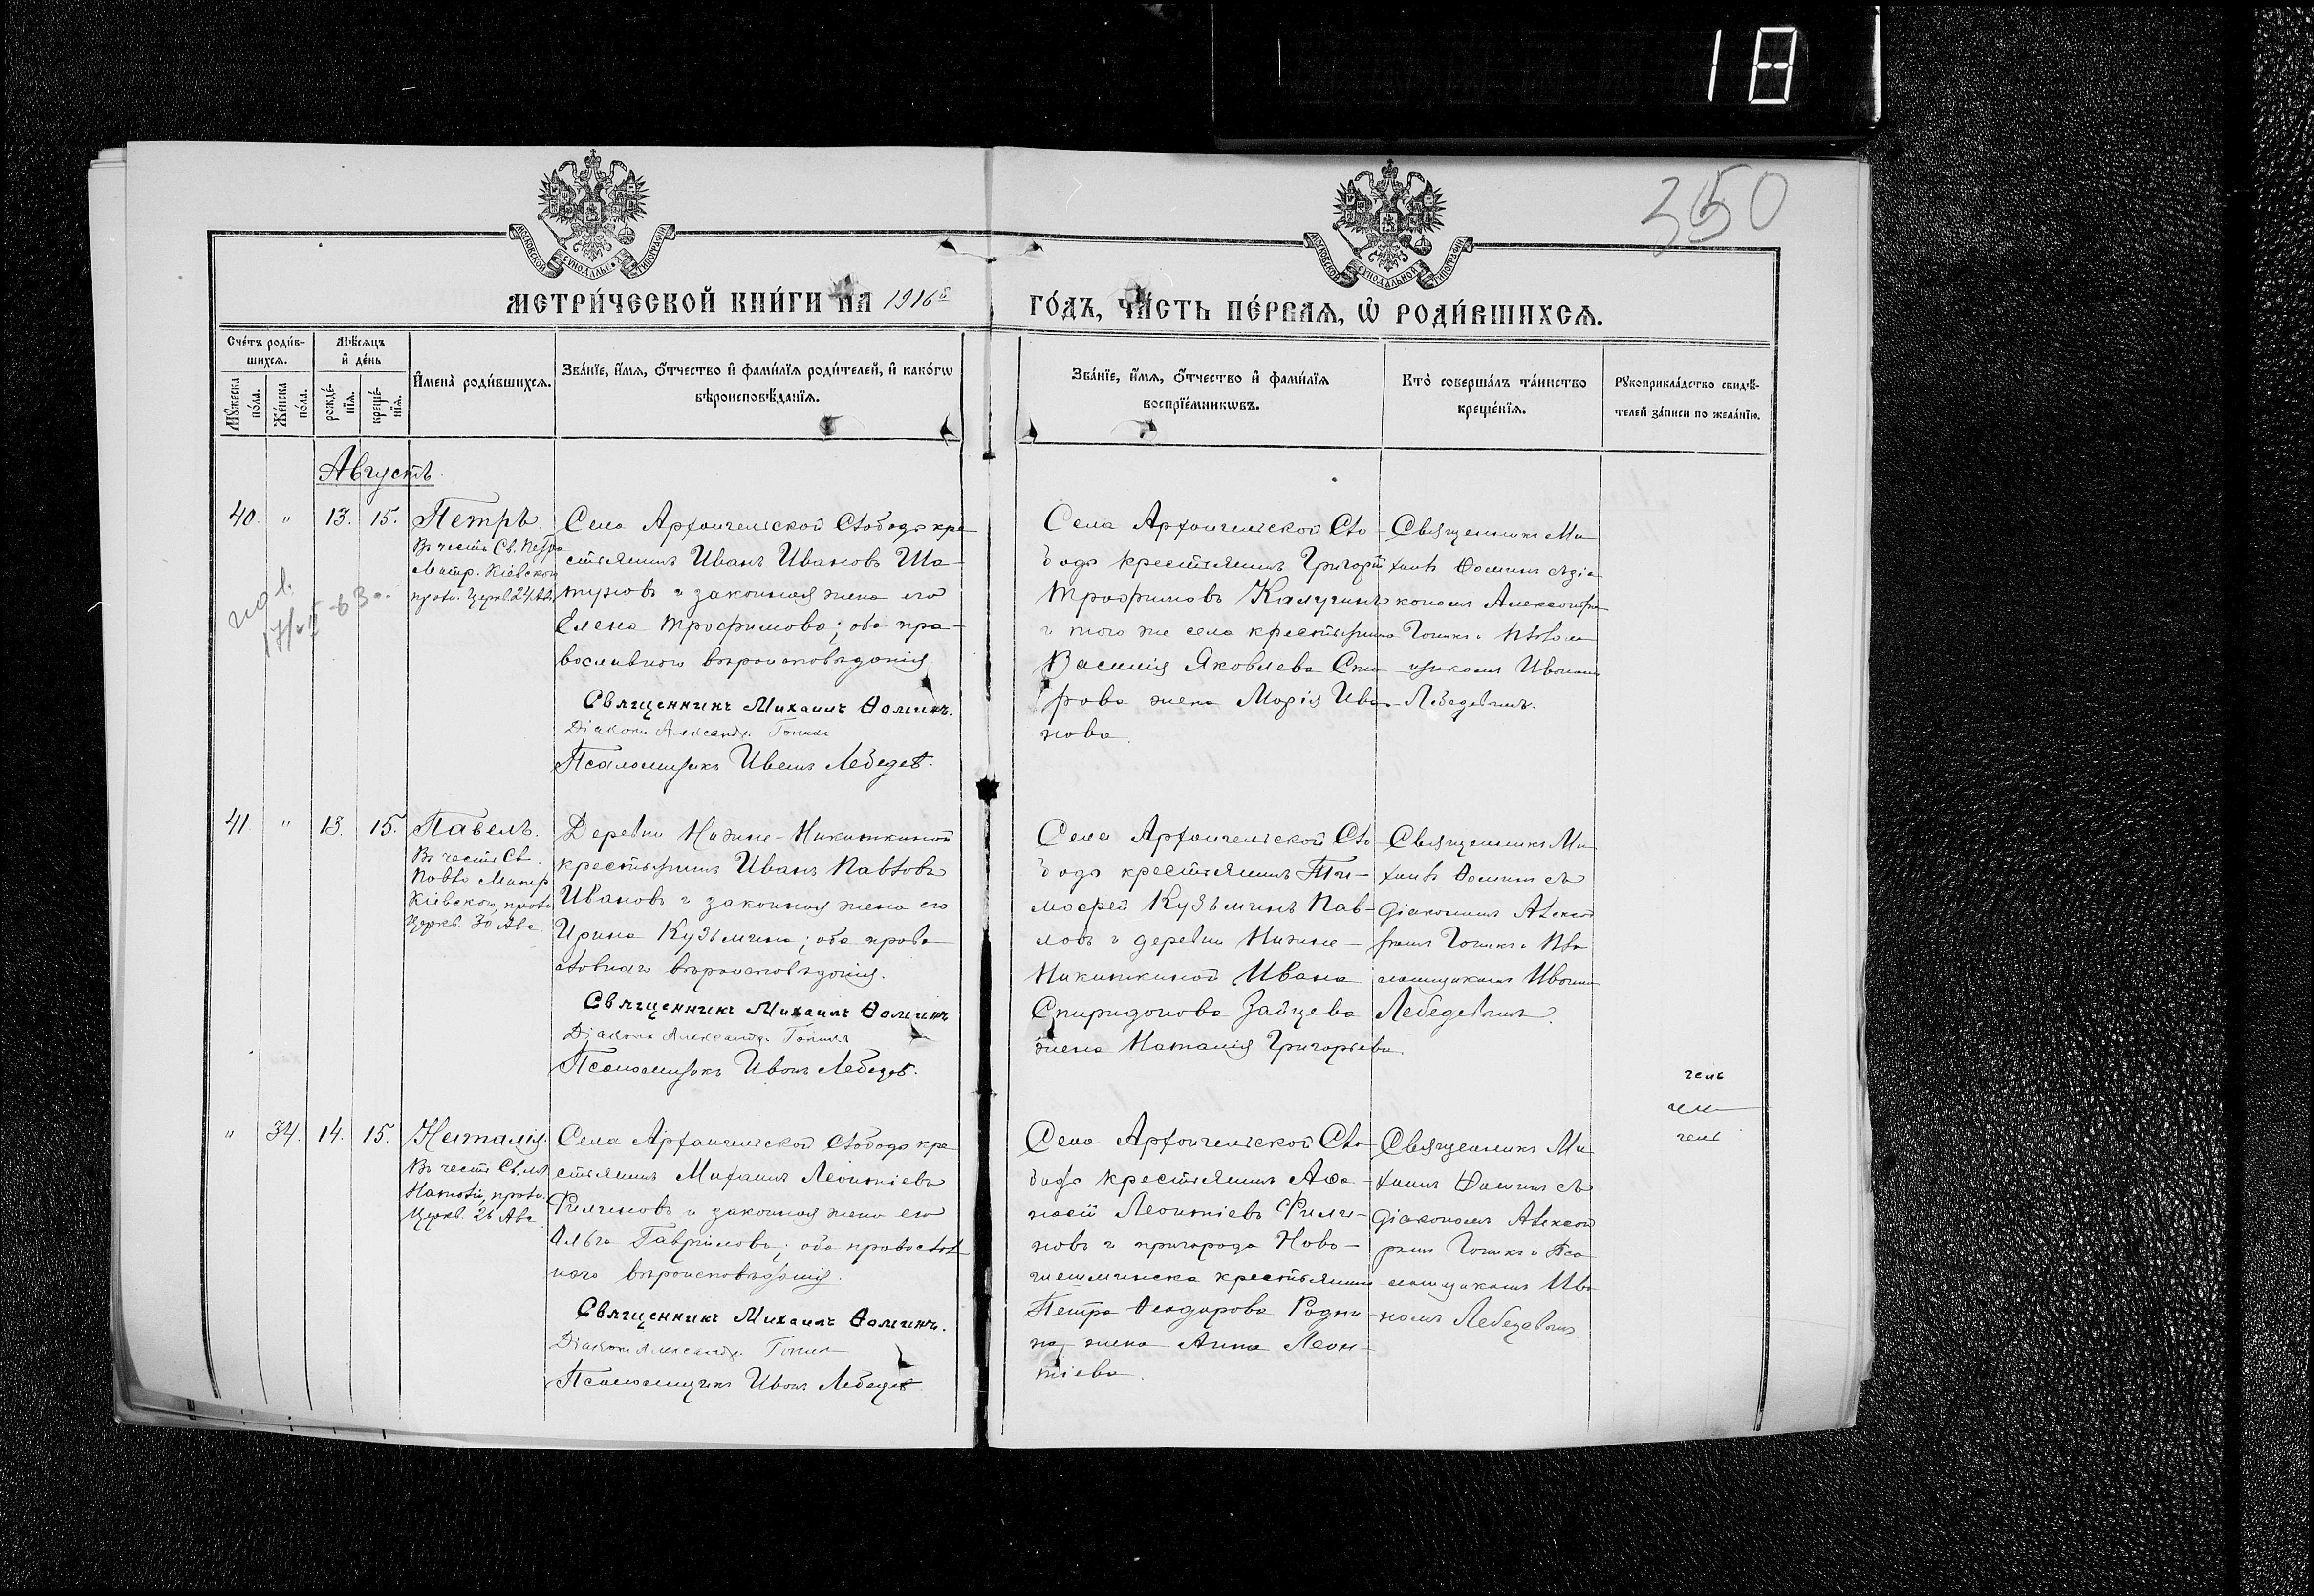 18
350
МОСКОВСКОЙ СУНОДАЛЬНОЙ ТИПОГРАФІИ
МОСКОВСКОЙ СУНОДАЛЬНОЙ ТИПОГРАФІИ
МЕТРИ́ЧЕСКОЙ КНИ́ГИ НА 1916й ГО́ДЪ, ЧА́СТЬ ПЕ́РВАЯ, Ѡ РОДИ́ВШИХСЯ.
Сче́тъ роди́в-
шихся.
Мꙋжеска по́ла.
Же́нска по́ла.
Мѣ́сяцъ
и де́нь
рожде́-
нія.
креще́-
нія.
Имена̀ роди́вшихся.
Зва́ніе, и́мя, о́тчество и фами́лія роди́телей, и како́гѡ
вѣроисповѣ́данія.
Зва́ніе, и́мя, о́тчество и фами́лія
воспріе́мникѡвъ.
Кто̀ соверша́лъ та́инство
креще́нія.
Рꙋкоприкла́дство свидѣ́-
телей за́писи по жела́нію.
Августъ.
40. " 13. 15. Петръ.
Въ честь Св. Петра
Митр. Кіевскаго
празн. Церков. 24 Авг.
Села Архангельской Слободы кре-
стьянинъ Иванъ Ивановъ Ша-
туновъ и законная жена его
Елена Трофимова; оба пра-
вославнаго вѣроисповѣданія
Священникъ Михаилъ Ѳоминъ.
Діаконъ Александръ
Псаломщикъ Иванъ Лебедевъ.
Села Архангельской Сло-
боды крестьянинъ Григорій
Трофимовъ Калугинъ
и того же села крестьянина
Василія Яковлева Спи-
рова жена Марія Ива-
нова.
Священникъ Ми-
хаилъ Ѳоминъ съ діа-
кономъ Александромъ
и псалом-
щикомъ Иваномъ
Лебедевымъ.
41. " 13. 15. Павелъ.
Въ честь Св.
Павла Митр.
Кіевскаго, празн.
Церков. 30 Авг.
Деревни Нижне-Никиткиной
крестьянинъ Иванъ Павловъ
Ивановъ и законная жена его
Ирина Кузьмина; оба право-
славнаго вѣроисповѣданія.
Священникъ Михаилъ Ѳоминъ
Діаконъ Александръ
Псаломщикъ Иванъ Лебедевъ.
Села Архангельской Сло-
боды крестьянинъ Ти-
мофей Кузьминъ Пав-
ловъ и деревни Нижне-
Никиткиной Ивана
Спиридонова Зайцева
жена Наталія Григорьева.
Священникъ Ми-
хаилъ Ѳоминъ съ
діакономъ Алексан-
дромъ и Пса-
ломщикомъ Иваномъ
Лебедевымъ.
" 34. 14. 15. Наталія.
Въ честь Св. м.
Наталіи, празн.
Церков. 26 Авг.
Села Архангельской Слободы кре-
стьянинъ Михаилъ Леонтіевъ
Филиновъ и законная жена его
Ольга Гаврилова; оба православ-
наго вѣроисповѣданія.
Священникъ Михаилъ Ѳоминъ.
Діаконъ Александръ
Псаломщикъ Иванъ Лебедевъ
Села Архангельской Сло-
боды крестьянинъ Аѳа-
насій Леонтіевъ Фили-
новъ и пригорода Ново-
шешминска крестьянина
Петра Ѳеодорова Родни-
на жена Анна Леон-
тіева.
Священникъ Ми-
хаилъ Ѳоминъ съ
діакономъ Алексан-
дромъ и Пса-
ломщикомъ Ива-
номъ Лебедевымъ